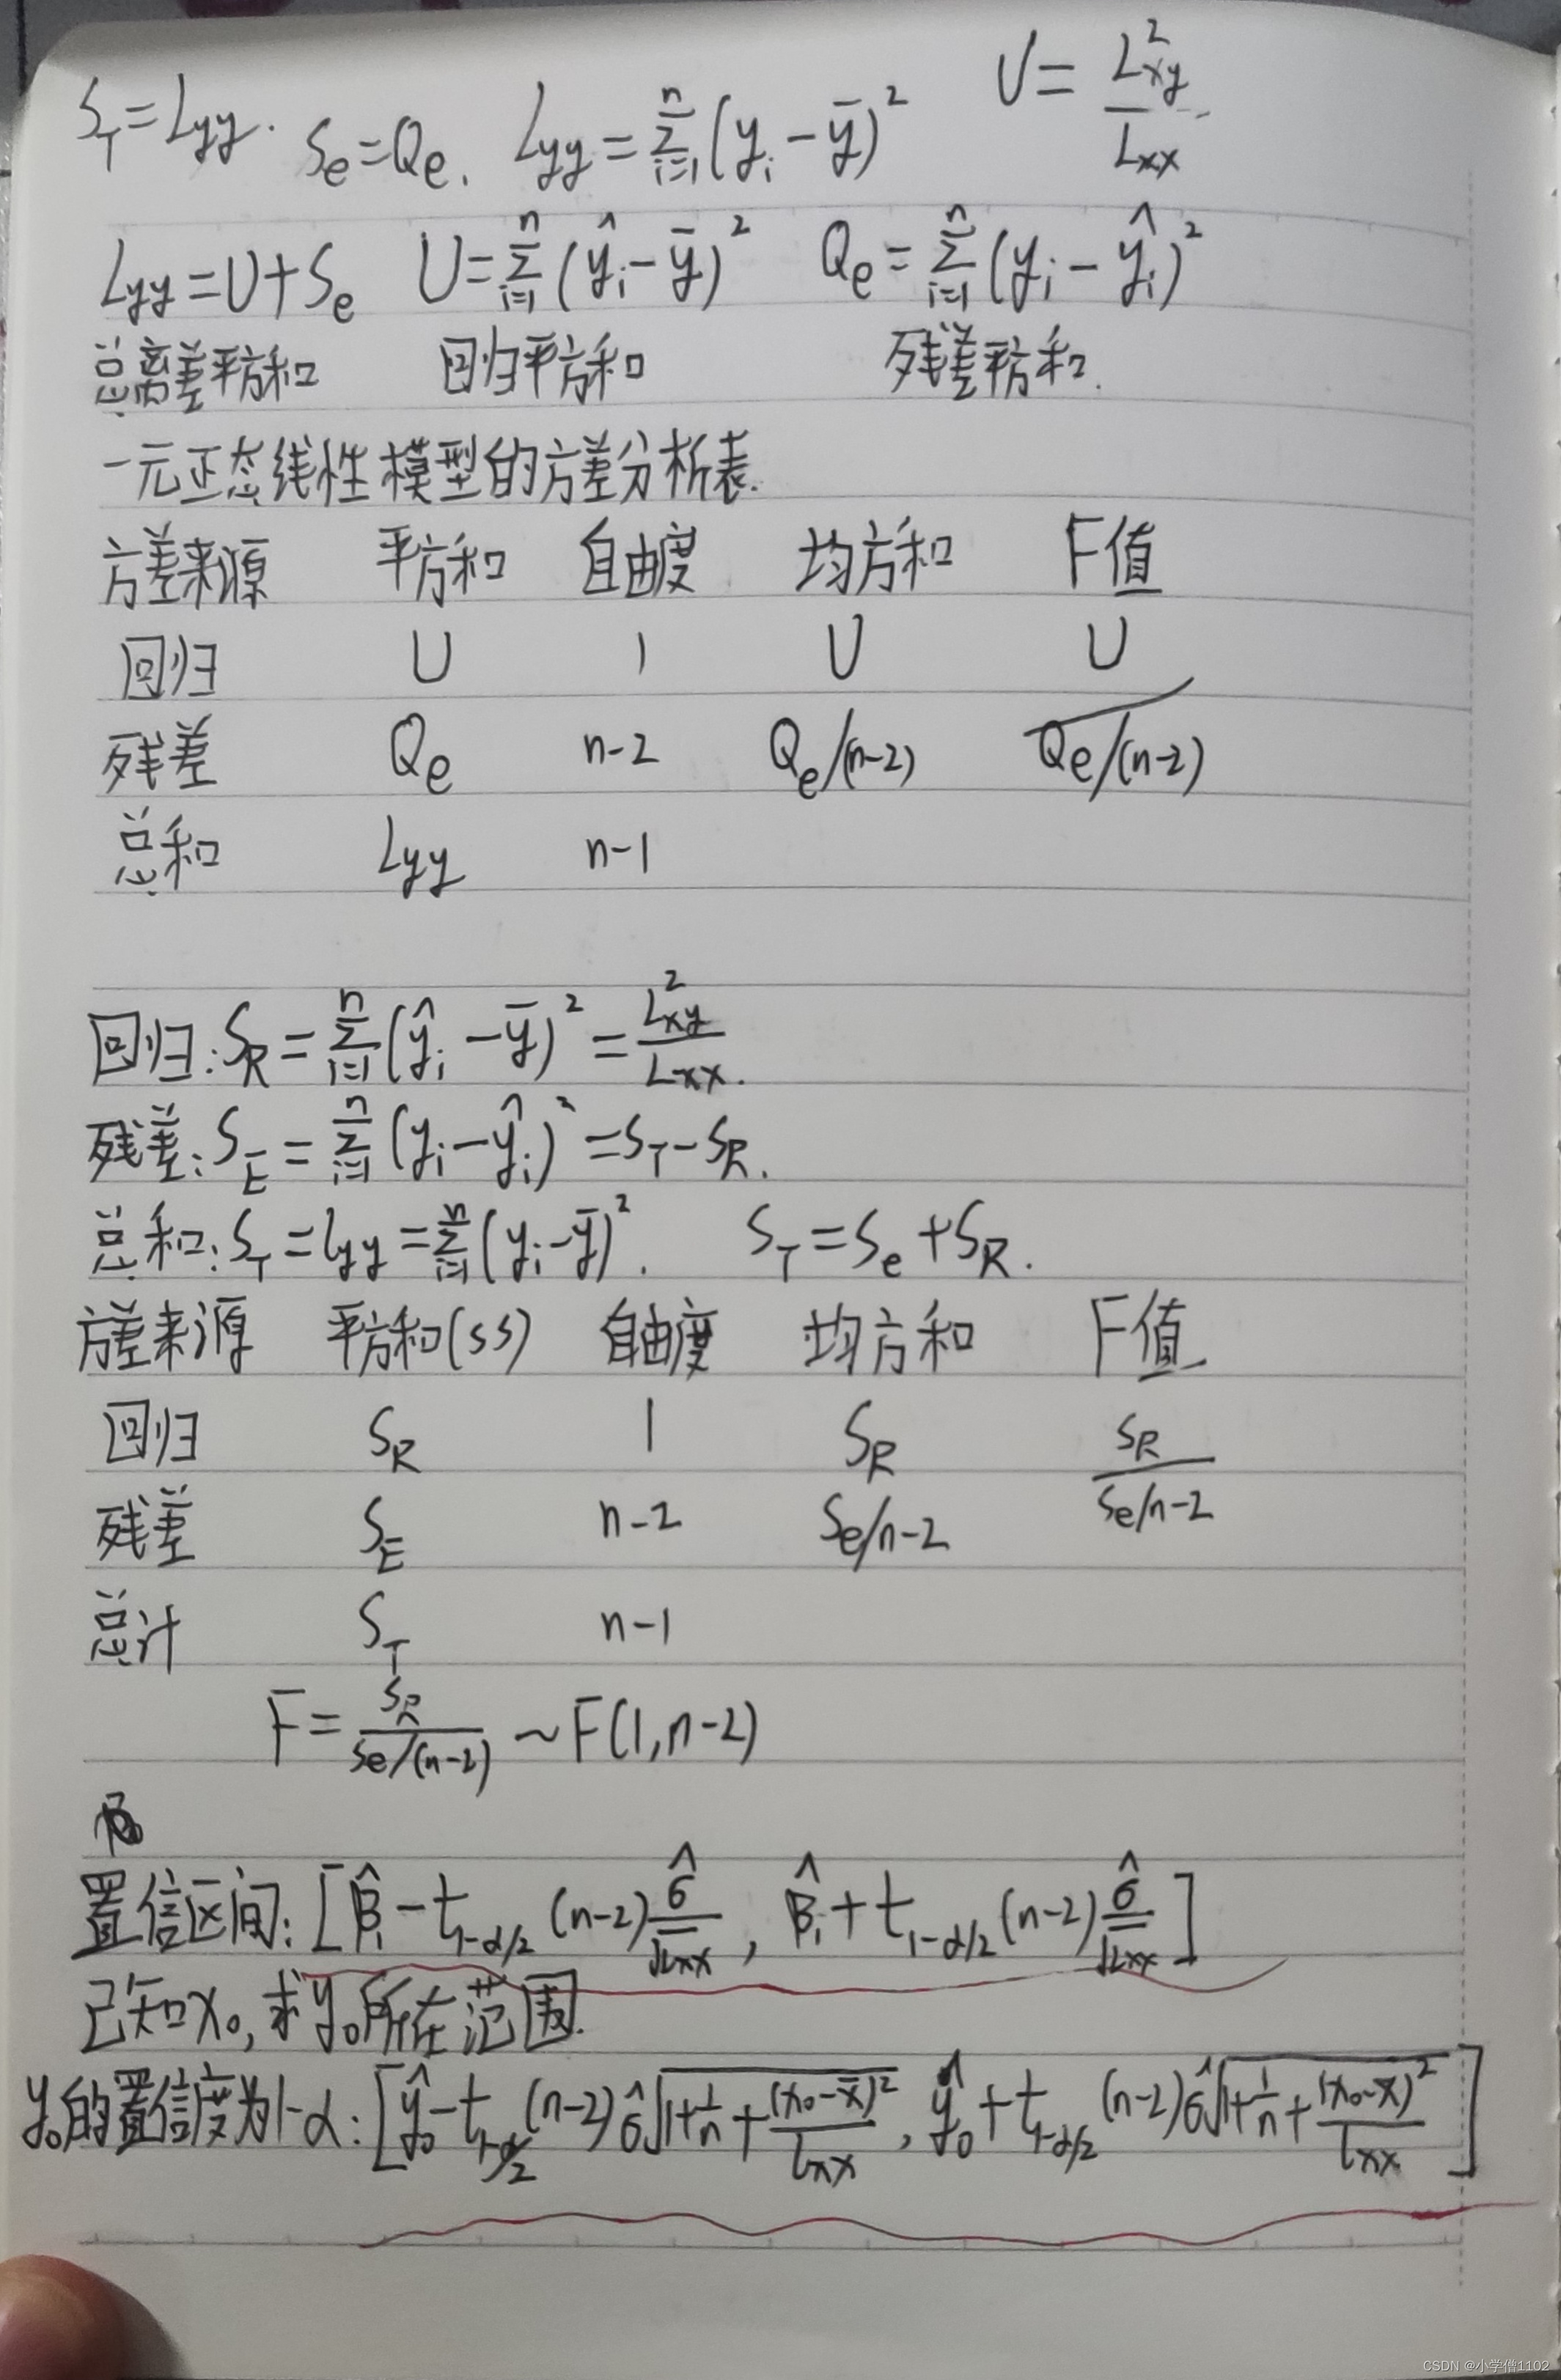 S_T=Lyy. Se=Qe. Lyy=∑_{i=1}^{n}(y_i-ȳ)² U=L²xy/Lxx
Lyy=U+Se U=∑_{i=1}^{n}(ŷ_i-ȳ)² Qe=∑_{i=1}^{n}(y_i-ŷ_i)²
总离差平方和 回归平方和 残差平方和.
一元正态线性模型的方差分析表.
方差来源 平方和 自由度 均方和 F值
回归 U 1 U U
残差 Qe n-2 Qe/(n-2) Qe/(n-2)
总和 Lyy n-1
回归:S_R=∑_{i=1}^{n}(ŷ_i-ȳ)²=L²xy/Lxx.
残差:S_E=∑_{i=1}^{n}(y_i-ŷ_i)²=S_T-S_R.
总和:S_T=lyy=∑_{i=1}^{n}(y_i-ȳ)². S_T=Se+S_R.
方差来源 平方和(SS) 自由度 均方和 F值
回归 S_R 1 S_R S_R
残差 S_E n-2 Se/n-2 Se/n-2
总计 S_T n-1
F=S_R/(Se/(n-2))~F(1,n-2)
置信区间:[β̂₁-t_{1-α/2}(n-2)σ̂/√Lxx, β̂₁+t_{1-α/2}(n-2)σ̂/√Lxx]
已知x₀,求y₀所在范围.
y₀的置信度为1-α:[ŷ₀-t_{1-α/2}(n-2)σ̂√(1+1/n+(x₀-x̄)²/lxx), ŷ₀+t_{1-α/2}(n-2)σ̂√(1+1/n+(x₀-x̄)²/lxx)]
CSDN @小学僧1102